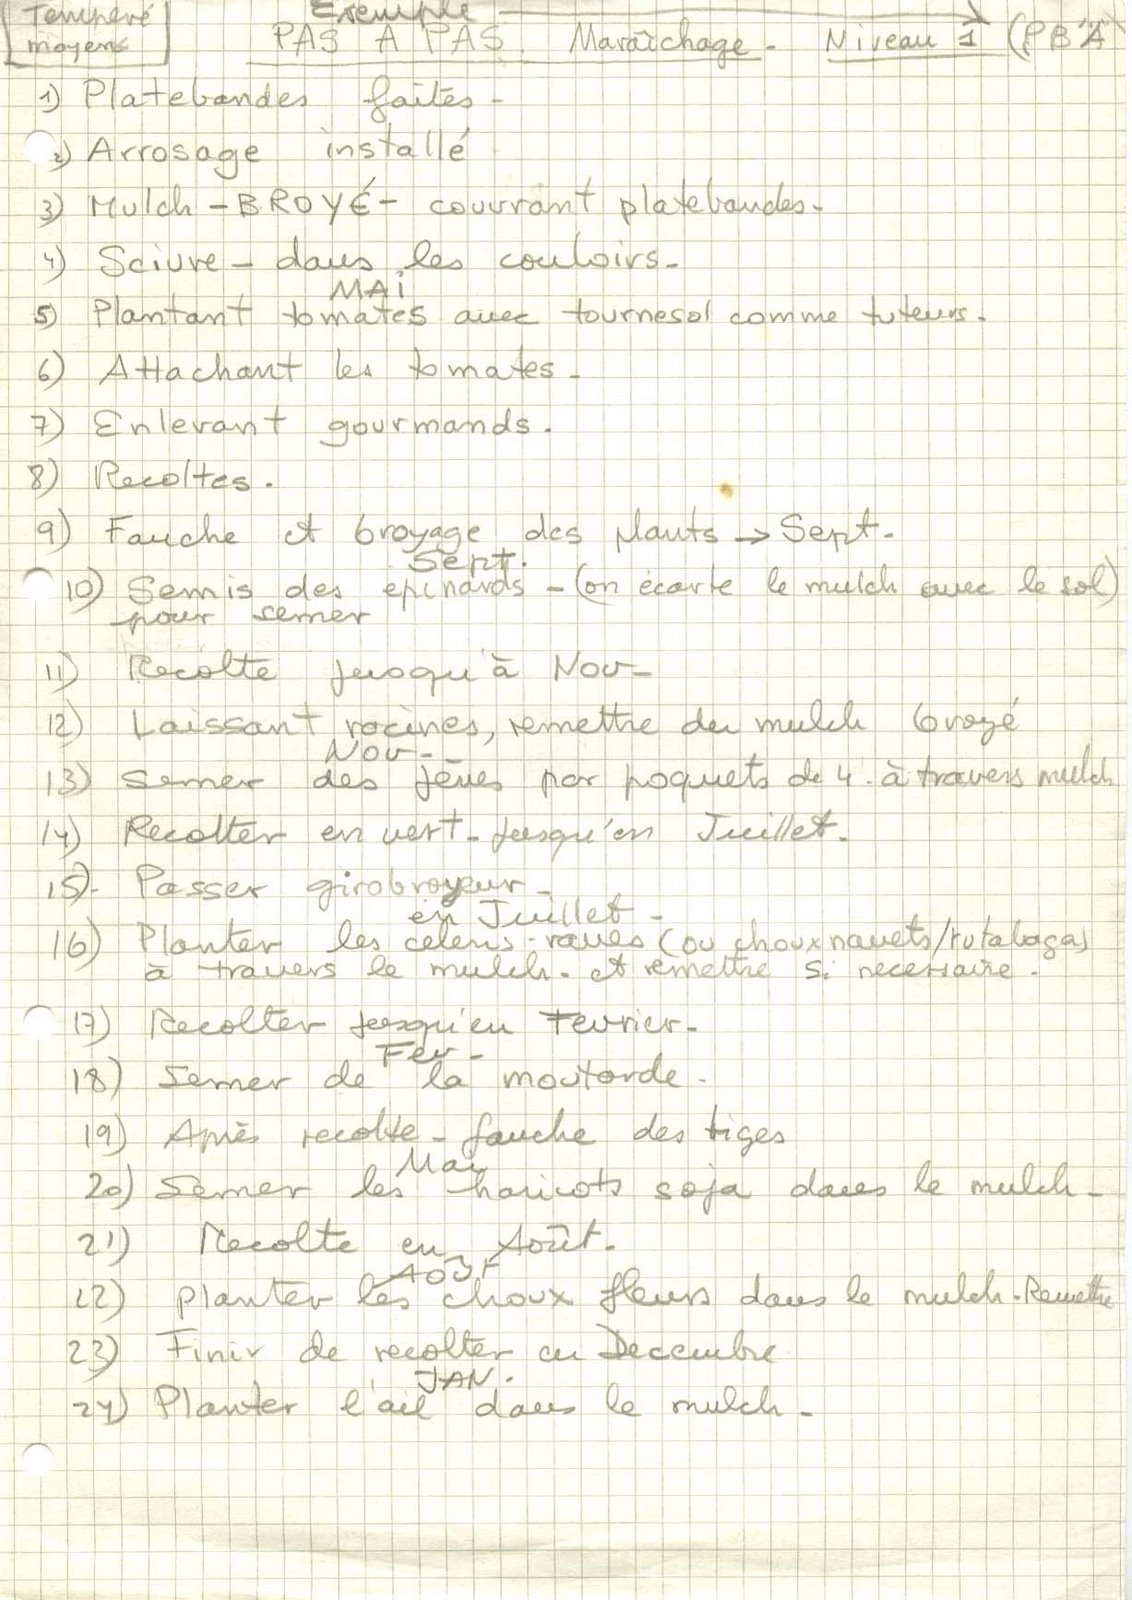 Exemple
Tempéré
moyens
PAS A PAS. Maraîchage - Niveau 1 (PBA
1) Platebandes faites -
2) Arrosage installé
3) Mulch - BROYÉ - couvrant platebandes -
4) Sciure - dans les couloirs -
MAI
5) Plantant tomates avec tournesol comme tuteurs.
6) Attachant les tomates -
7) Enlevant gourmands.
8) Recoltes.
9) Fauche et broyage des plants → Sept.
Sept.
10) Semis des epinards - (on écarte le mulch avec le sol)
pour semer
11) Recolte jusqu'à Nov -
12) Laissant racines, remettre du mulch broyé
Nov -
13) Semer des fèves par poquets de 4. à travers mulch
14) Recolter en vert - jusqu'en Juillet.
15) - Passer girobroyeur -
en Juillet -
16) Planter les celeris-raves (ou choux navets/rutabaga)
à travers le mulch. et remettre si necessaire.
17) Recolter jusqu'en Fevrier -
Fev -
18) Semer de la moutarde.
19) Après recolte - fauche des tiges
Mai
20) Semer les haricots soja dans le mulch -
21) Recolte en Août.
AOÛT
22) planter les choux fleurs dans le mulch. Remettre
23) Finir de recolter en Decembre
JAN.
24) Planter l'ail dans le mulch -